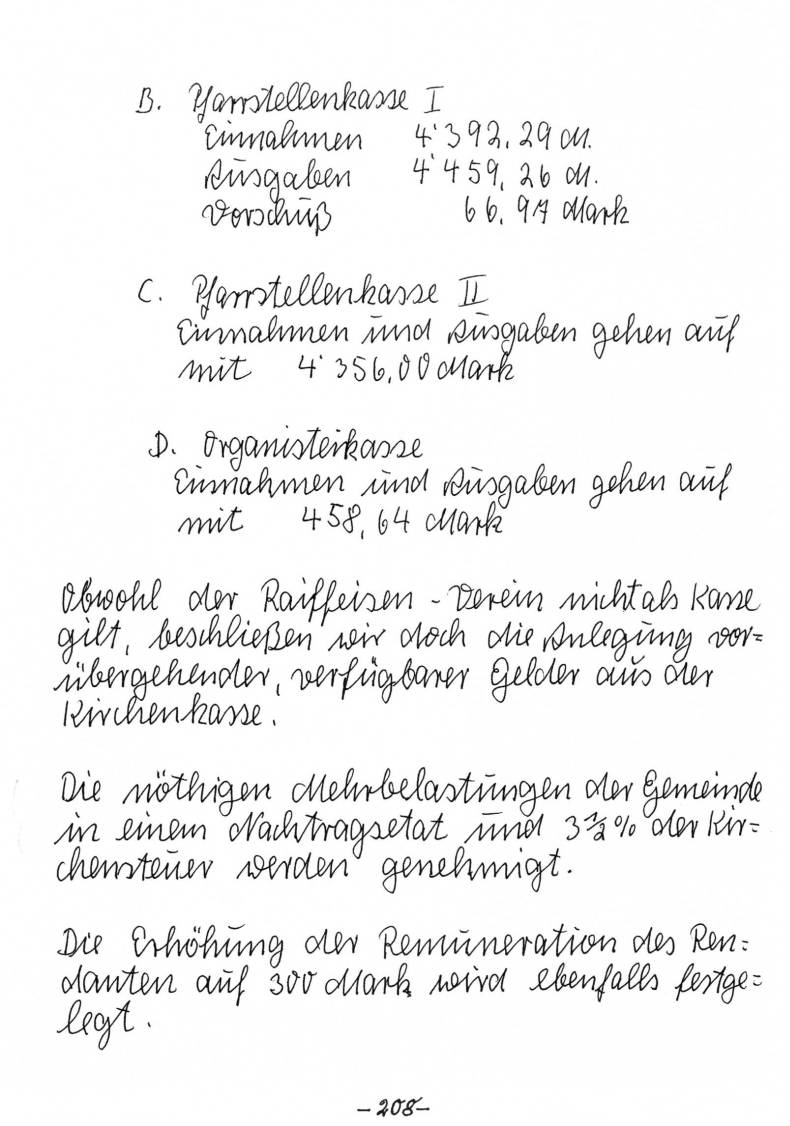 B. Pfarrstellenkasse I
Einnahmen 4'392,29 M.
Ausgaben 4'459,26 M.
Vorschuß 66,97 Mark
C. Pfarrstellenkasse II
Einnahmen und Ausgaben gehen auf
mit 4'356,00 Mark
D. Organisteikasse
Einnahmen und Ausgaben gehen auf
mit 458,64 Mark
Obwohl der Raiffeisen-Verein nicht als Kasse
gilt, beschließen wir doch die Anlegung vor=
übergehender, verfügbarer Gelder aus der
Kirchenkasse.
Die nöthigen Mehrbelastungen der Gemeinde
in einem Nachtragsetat und 3 1/2 % der Kir=
chensteuer werden genehmigt.
Die Erhöhung der Remuneration des Ren=
danten auf 300 Mark wird ebenfalls festge=
legt.
-208-